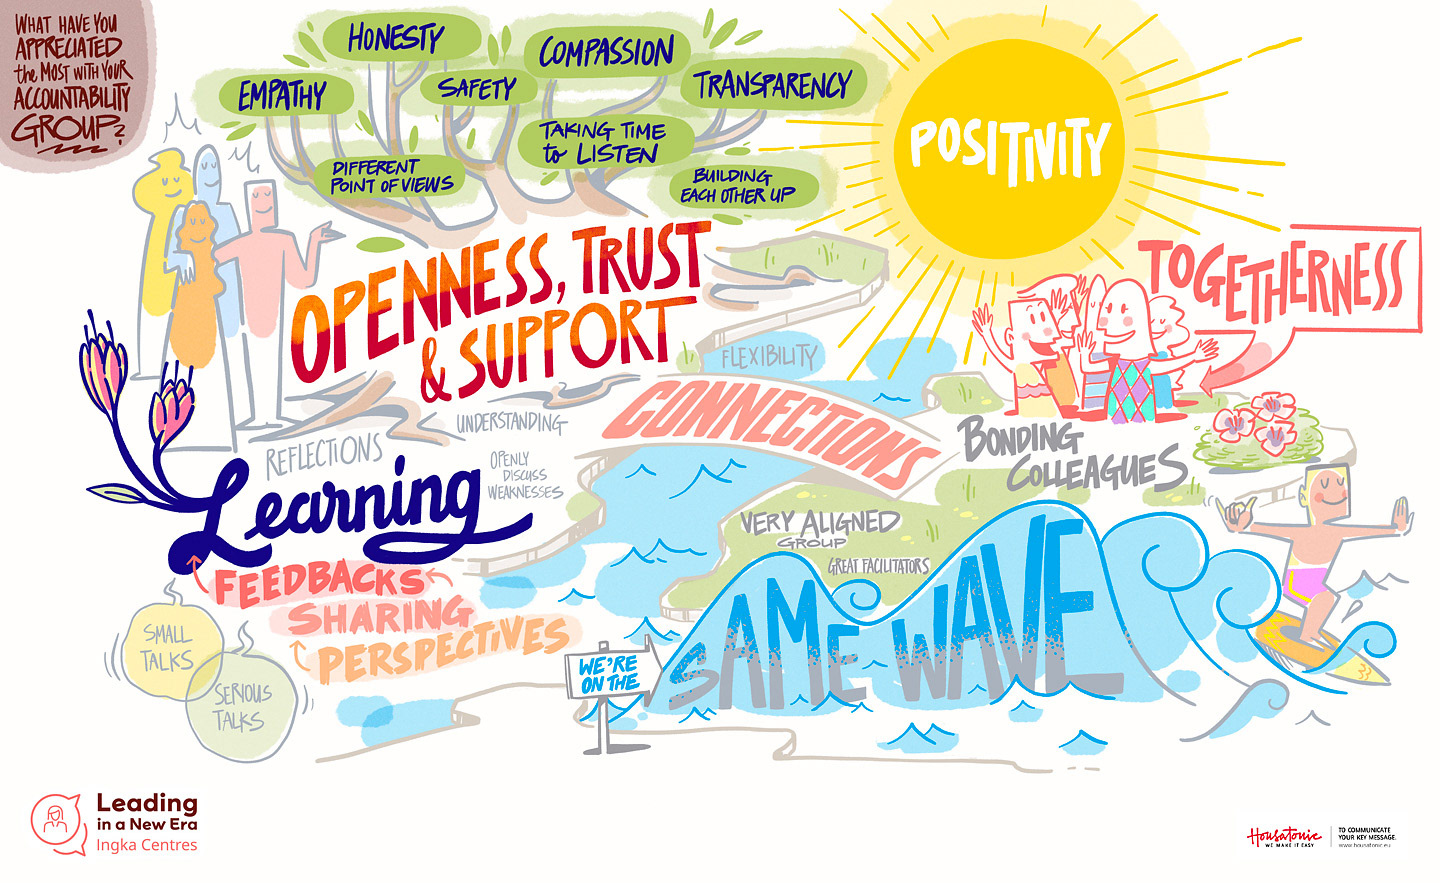 WHAT HAVE YOU
APPRECIATED
the MOST WITH YOUR
ACCOUNTABILITY
GROUP?
HONESTY
COMPASSION
EMPATHY
SAFETY
TRANSPARENCY
TAKING TIME
to LISTEN
DIFFERENT
POINT OF VIEWS
BUILDING
EACH OTHER UP
POSITIVITY
OPENNESS, TRUST
& SUPPORT
TOGETHERNESS
FLEXIBILITY
CONNECTIONS
UNDERSTANDING
REFLECTIONS
OPENLY
DISCUSS
WEAKNESSES
Learning
BONDING
COLLEAGUES
VERY ALIGNED
GROUP
GREAT FACILITATORS
FEEDBACKS
SHARING
PERSPECTIVES
SMALL
TALKS
SERIOUS
TALKS
WE'RE
ON THE
SAME WAVE
Leading
in a New Era
Ingka Centres
Housatonic
WE MAKE IT EASY
TO COMMUNICATE
YOUR KEY MESSAGE.
www.housatonic.eu